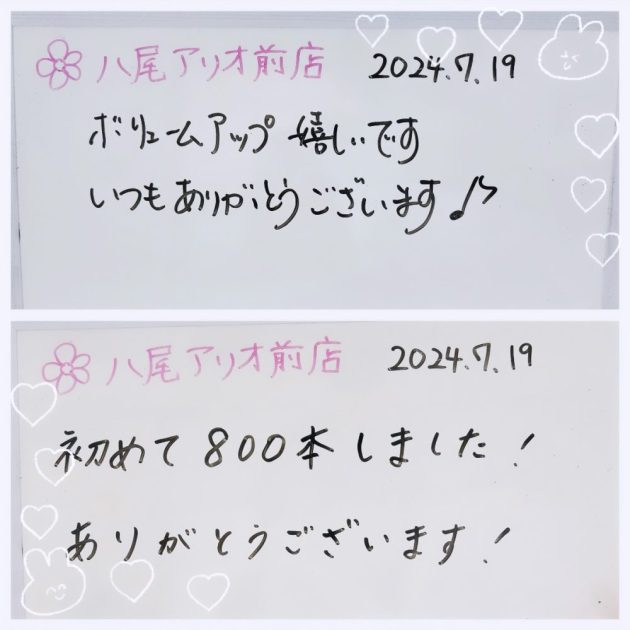 八尾アリオ前店 2024.7.19
ボリュームアップ嬉しいです
いつもありがとうございます♪
八尾アリオ前店 2024.7.19
初めて800本しました!
ありがとうございます!